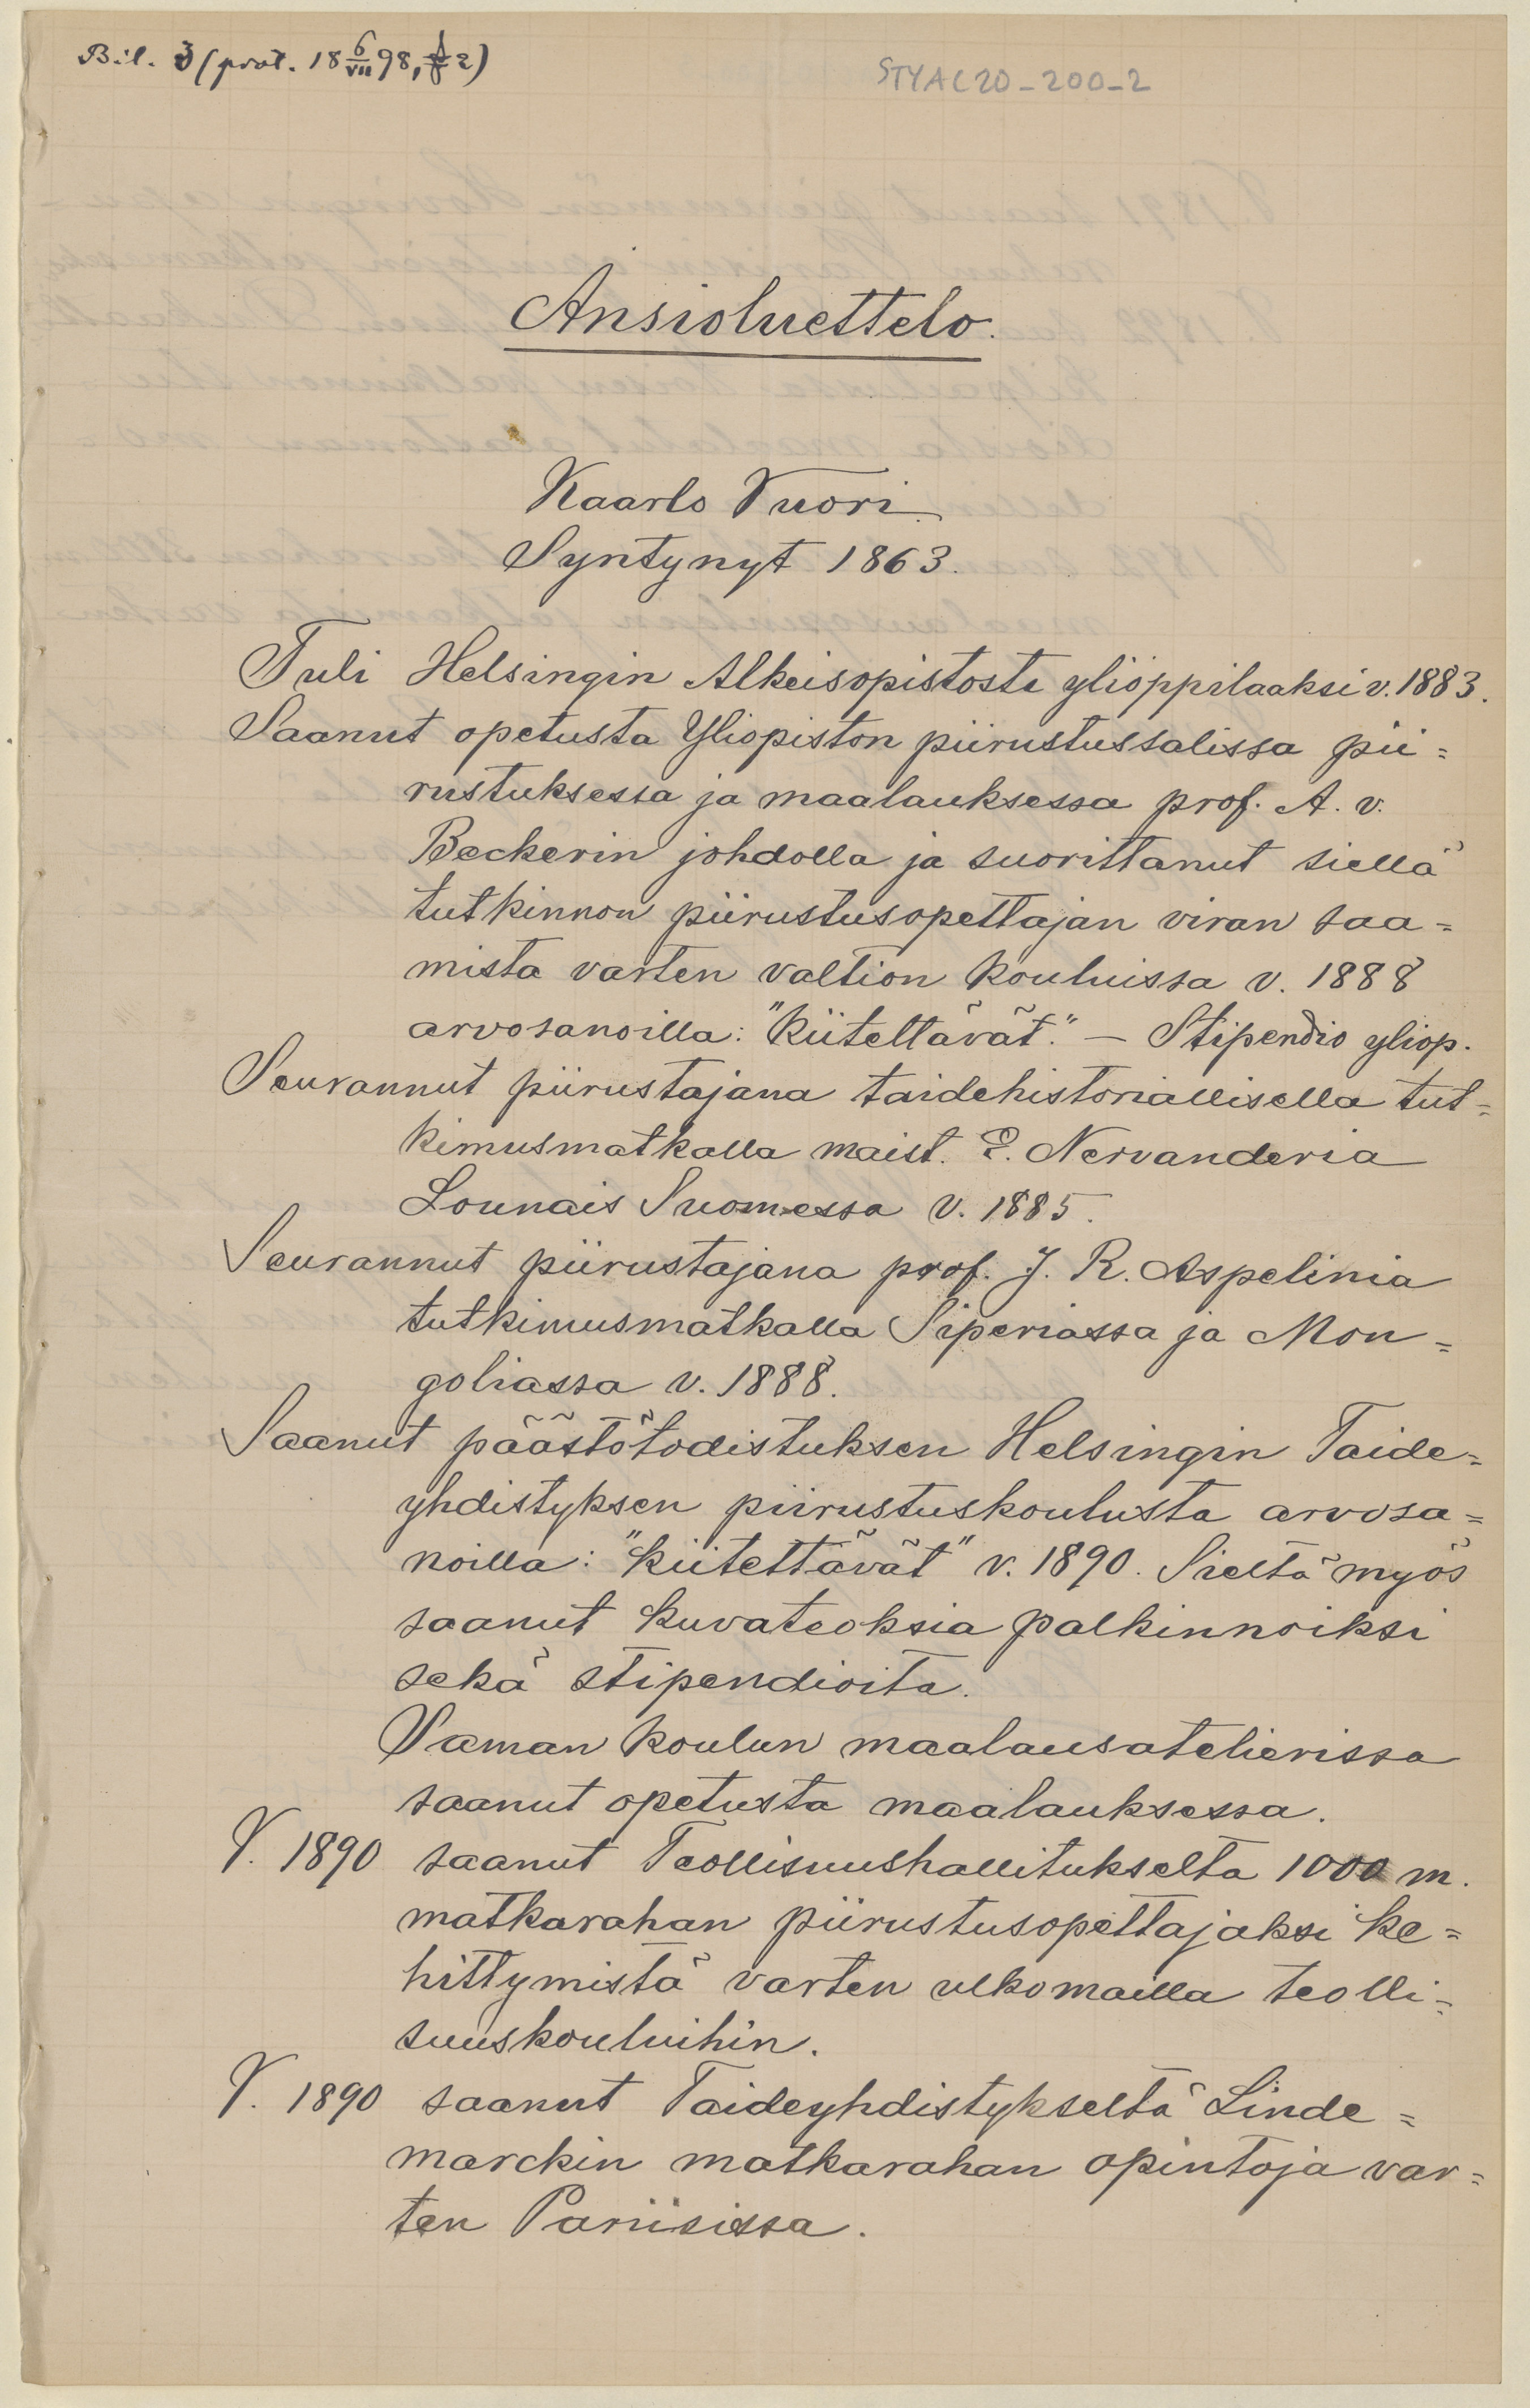 Bil. 3 (prot. 18 6/VII 98, § 2)
STYAC20-200-2
Ansioluettelo.
Kaarlo Vuori.
Syntynyt 1863.
Tuli Helsingin Alkeisopistosta ylioppilaaksi v. 1883.
Saanut opetusta Yliopiston piirustussalissa pii=
rustuksessa ja maalauksessa prof. A. v.
Beckerin johdolla ja suorittanut siellä
tutkinnon piirustusopettajan viran saa=
mista varten valtion kouluissa v. 1888
arvosanoilla: "kiitettävät." — Stipendio yliop.
Seurannut piirustajana taidehistoriallisella tut=
kimusmatkalla maist. E. Nervanderia
Lounais Suomessa v. 1885.
Seurannut piirustajana prof. J. R. Aspelinia
tutkimusmatkalla Siperiassa ja Mon=
goliassa v. 1888.
Saanut päästötodistuksen Helsingin Taide=
yhdistyksen piirustuskoulusta arvosa=
noilla: "kiitettävät" v. 1890. Sieltä myös
saanut kuvateoksia palkinnoiksi
sekä stipendioita.
Saman koulun maalausatelierissa
saanut opetusta maalauksessa.
V. 1890 saanut Teollisuushallitukselta 1000 m.
matkarahan piirustusopettajaksi ke=
hittymistä varten ulkomailla teolli=
suuskouluihin.
V. 1890 saanut Taideyhdistykseltä Linde=
marckin matkarahan opintoja var=
ten Pariisissa.